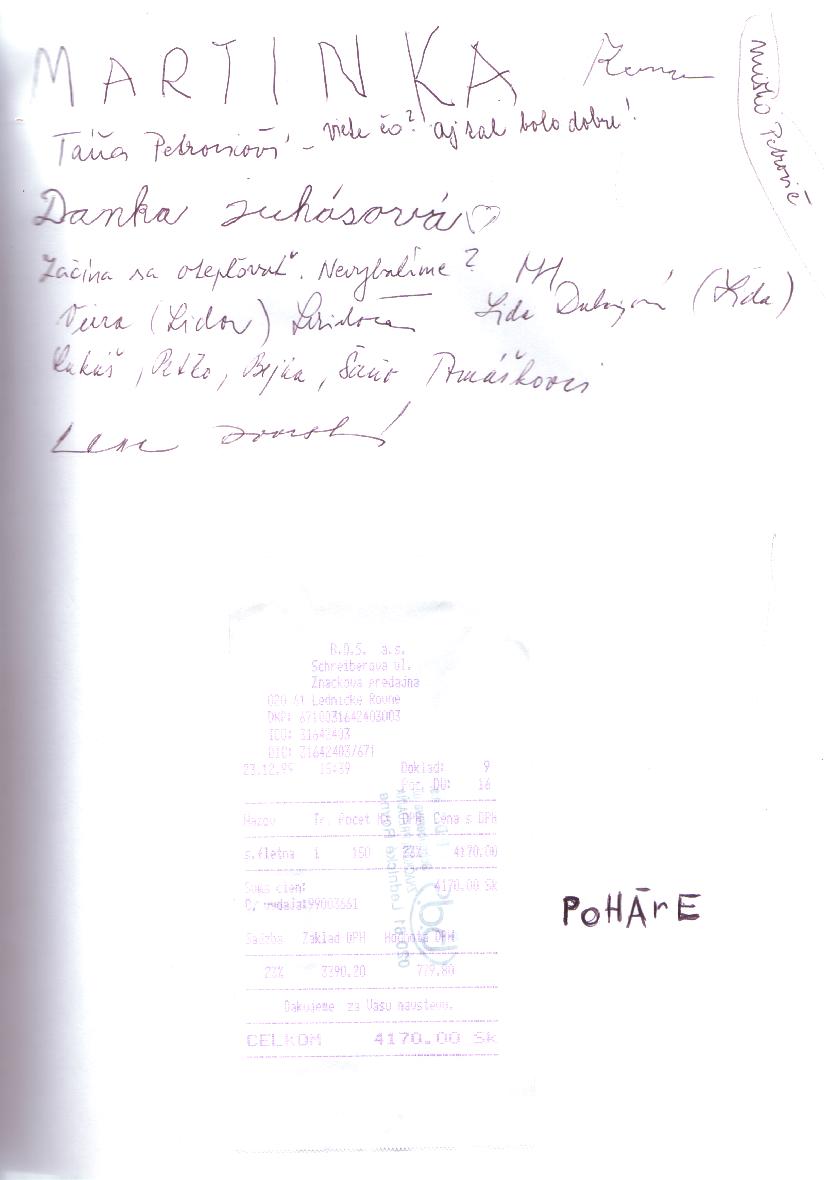 MARTINKA
Miško Petrovič
Táňa Petrovičová - viete čo? aj sál bolo dobre!
Danka Juhásová ♡
Začína sa otepľovať. Nevybalíme?
Viera (Lidov)
Lida (Lída)
Lukáš, Peťko, Bejka, Šaňo Tomáškovci
R.O.S. a.s.
Schreiberova ul.
Znackova predajna
020 61 Lednicke Rovne
DKP: 6710031642403003
ICO: 31642403
DIC: 31642403/671
23.12.99 15:39 Doklad: 9
DU: 16
Nazov Pocet DPH Cena s DPH
s.fletna 1 150 23% 4170.00
Suma cien: 4170.00 Sk
99003661
Sadzba Zaklad DPH Hodnota DPH
23% 3390.20 779.80
Dakujeme za Vasu navstevu.
CELKOM 4170.00 Sk
020 61 Lednické Rovne
POHÁrE